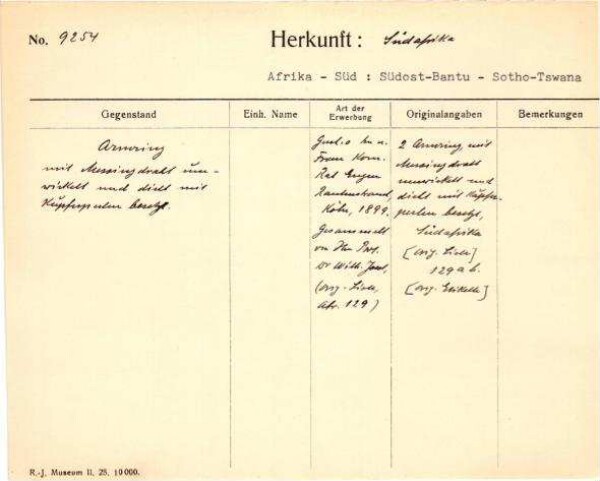 No. 9254
Herkunft: Südafrika
Afrika - Süd : Südost-Bantu - Sotho-Tswana
Gegenstand
Einh. Name
Art der Erwerbung
Originalangaben
Bemerkungen
Armring
mit Messingdraht um-
wickelt und dicht mit
Kupferperlen besetzt.
Hn u.
Frau Kom.
Rat Eugen
Rautenstrauch,
Köln, 1899.
Gesammelt
von Hn Prof.
Dr Wilh. Joest,
(orig. Liste,
129)
2 Armring mit
Messingdraht
umwickelt und
dicht mit Kupfer-
perlen besetzt,
Südafrika
[orig. Liste]
129 a b.
[orig. Etikette]
R.-J. Museum II. 25. 10000.